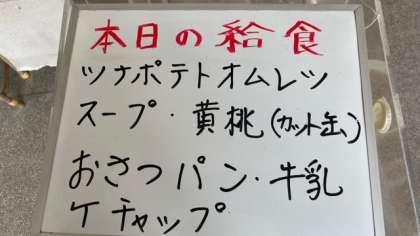 本日の給食
ツナポテトオムレツ
スープ・黄桃(カット缶)
おさつパン・牛乳
ケチャップ